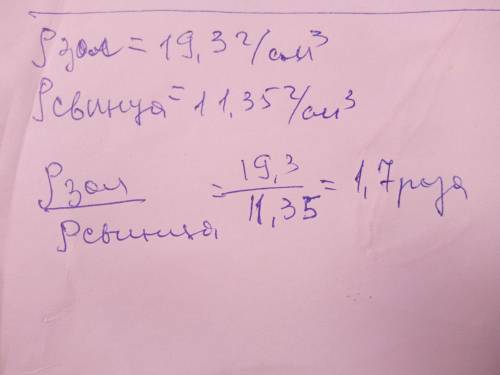 ρзол = 19,3 г/см³
ρсвинца = 11,35 г/см³
ρзол / ρсвинца = 19,3 / 11,35 = 1,7 раза